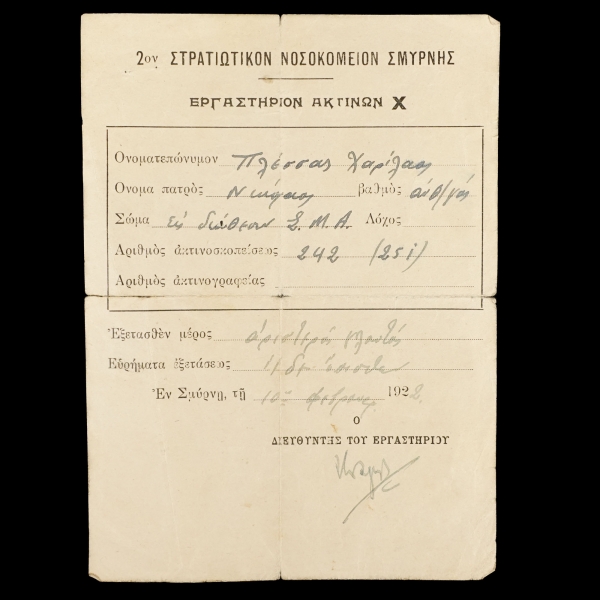 2ον ΣΤΡΑΤΙΩΤΙΚΟΝ ΝΟΣΟΚΟΜΕΙΟΝ ΣΜΥΡΝΗΣ
ΕΡΓΑΣΤΗΡΙΟΝ ΑΚΤΙΝΩΝ Χ
Ὀνοματεπώνυμον Πλέσσας Χαρίλαος
Ὄνομα πατρὸς βαθμὸς ἀνθ/γός
Σῶμα Σ.Μ.Α. Λόχος
Ἀριθμὸς ἀκτινοσκοπείσεως 242 (251)
Ἀριθμὸς ἀκτινογραφείας
Ἐξετασθὲν μέρος ἀριστερός γλουτός
Εὑρήματα ἐξετάσεως
Ἐν Σμύρνῃ, τῇ 10 1922
Ο
ΔΙΕΥΘΥΝΤΗΣ ΤΟΥ ΕΡΓΑΣΤΗΡΙΟΥ